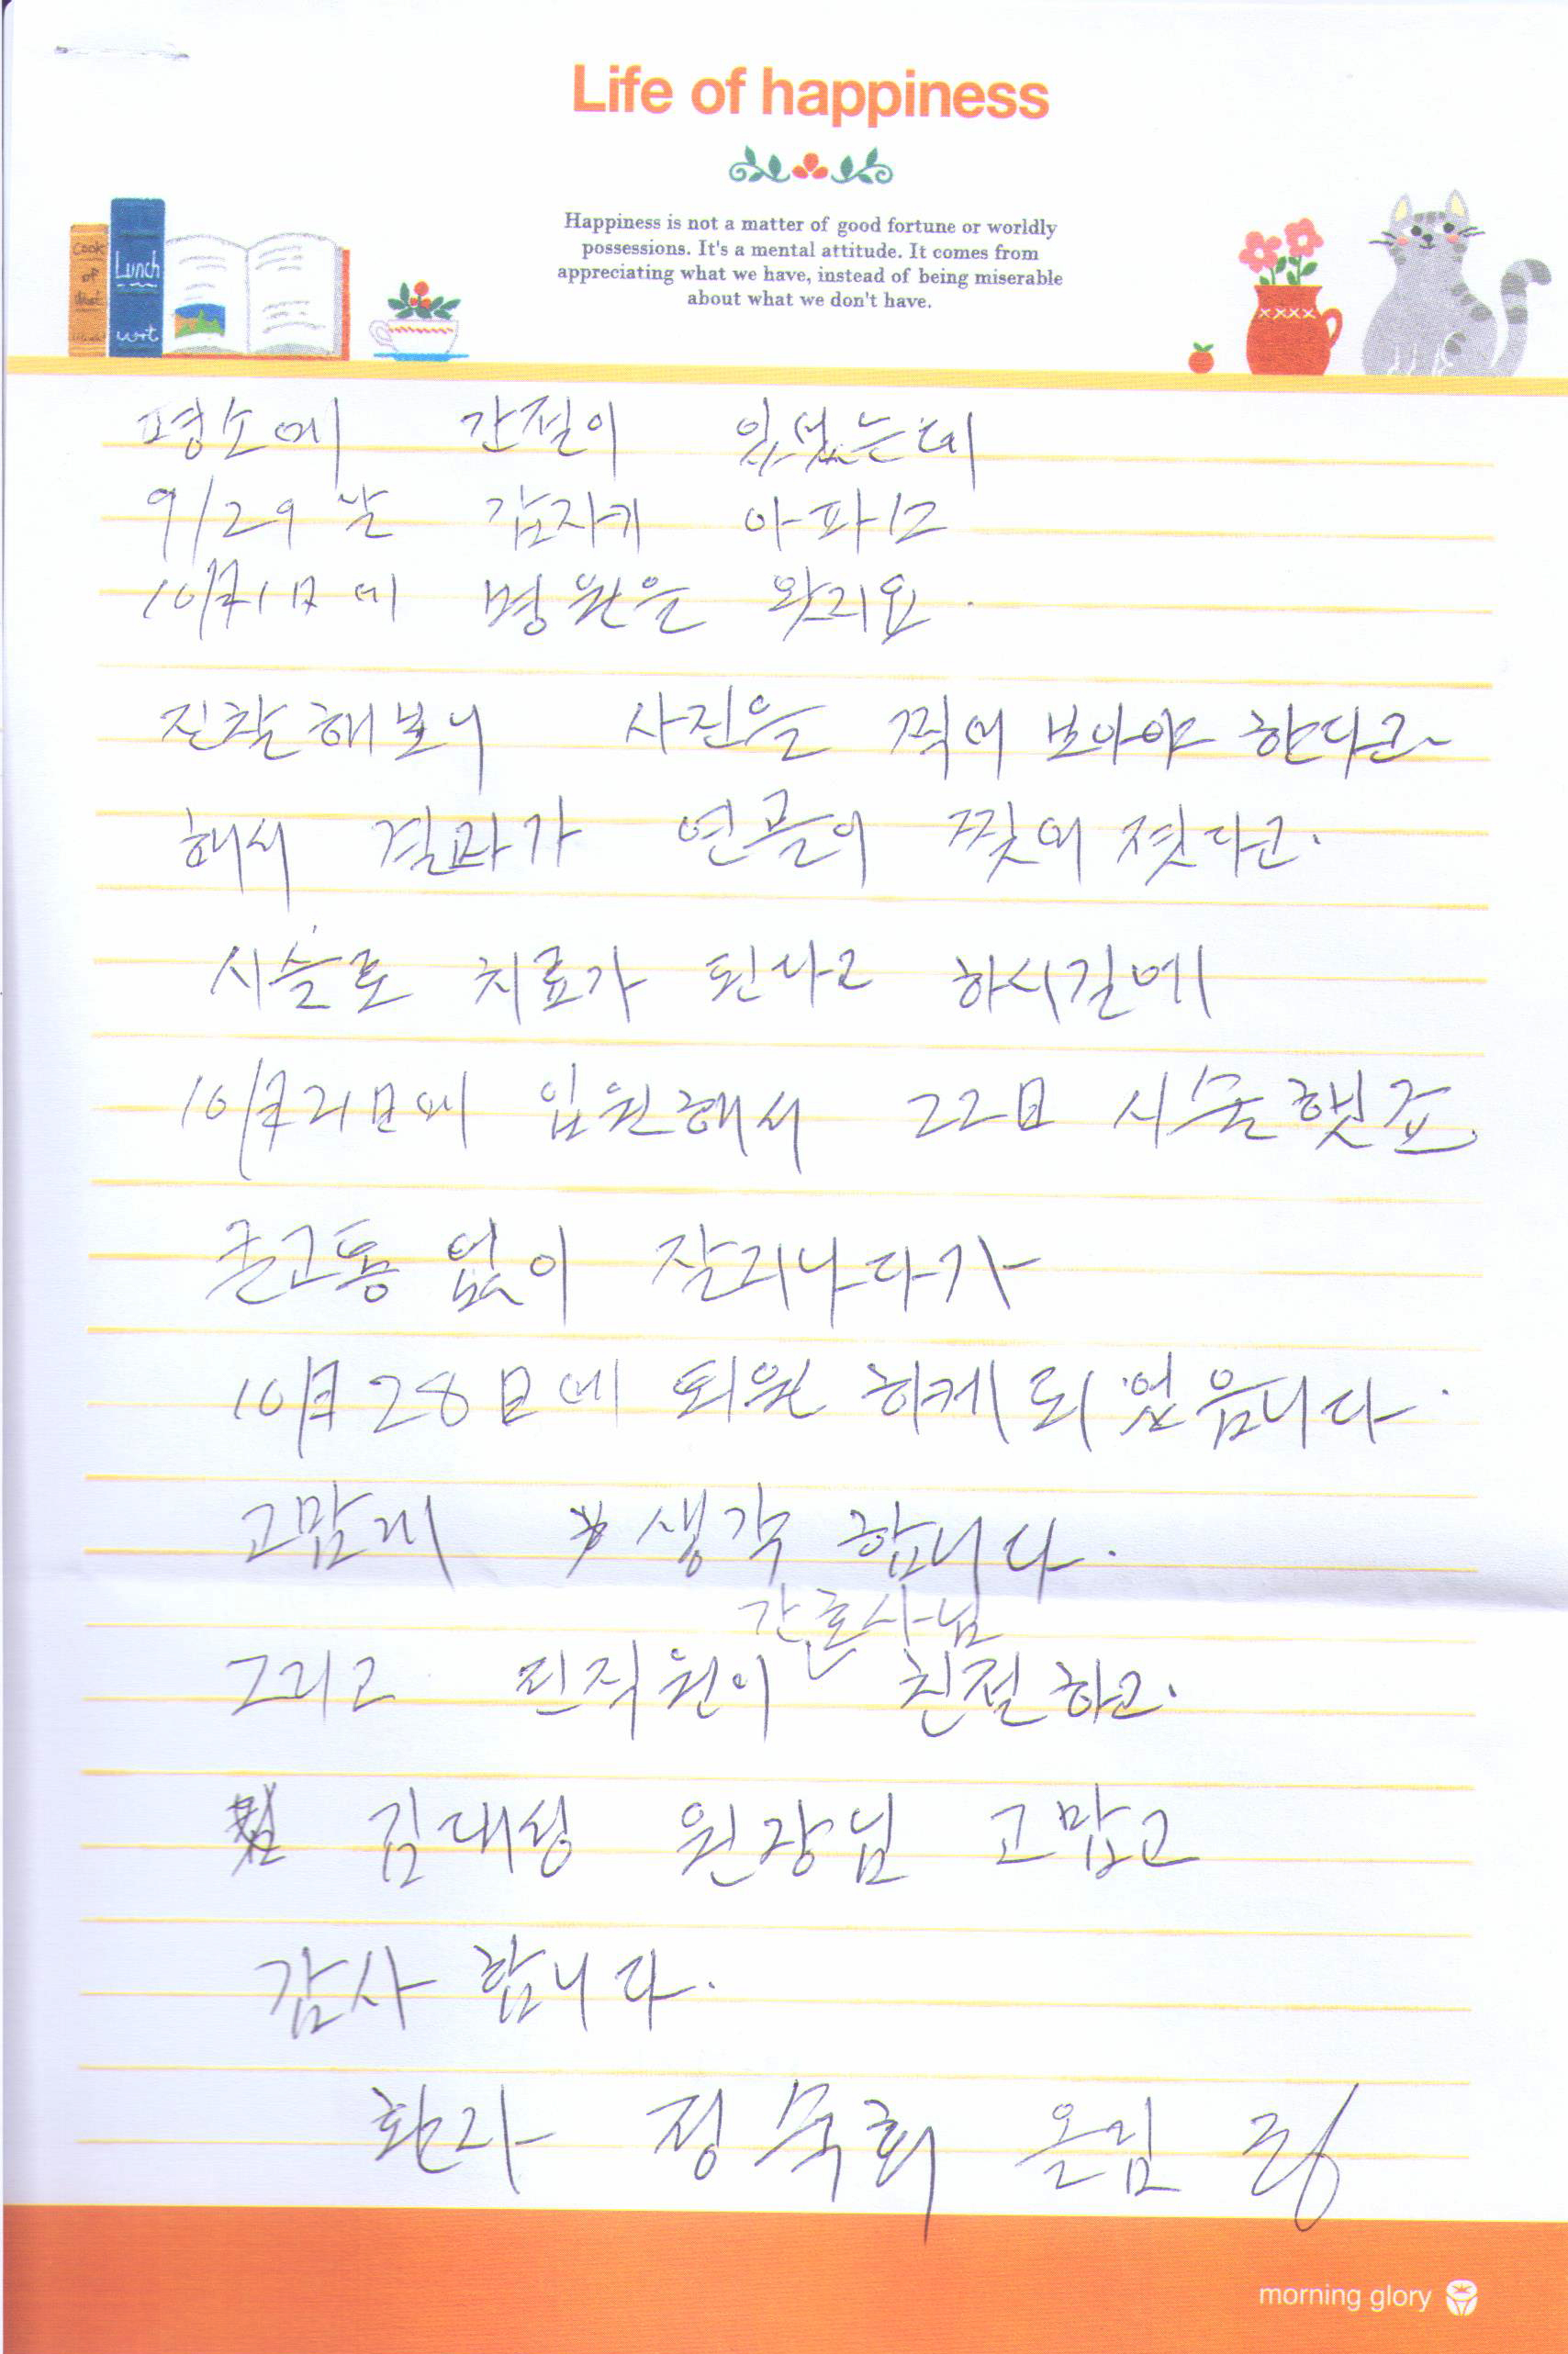 Life of happiness
Happiness is not a matter of good fortune or worldly
possessions. It's a mental attitude. It comes from
appreciating what we have, instead of being miserable
about what we don't have.
Cook
of
Lunch
평소에 간절이 있섰는데
9/29날 갑자기 아파고
10/月1日에 병원을 왓지요.
진찰해보니 사진을 찍어 보아야 한다고~
해서 결과가 연골이 찢어 젓다고.
시술로 치료가 된다고 하시길에
10/月21日에 입원해서 22日 시술했죠.
큰고통 없이 잘지나다가
10/月28日에 퇴원 하게 되었읍니다.
고맙게 생각 합니다.
간호사님
그리고 직원이 친절하고.
김대성 원장님 고맙고
감사 합니다.
환자 정숙희 올림
morning glory